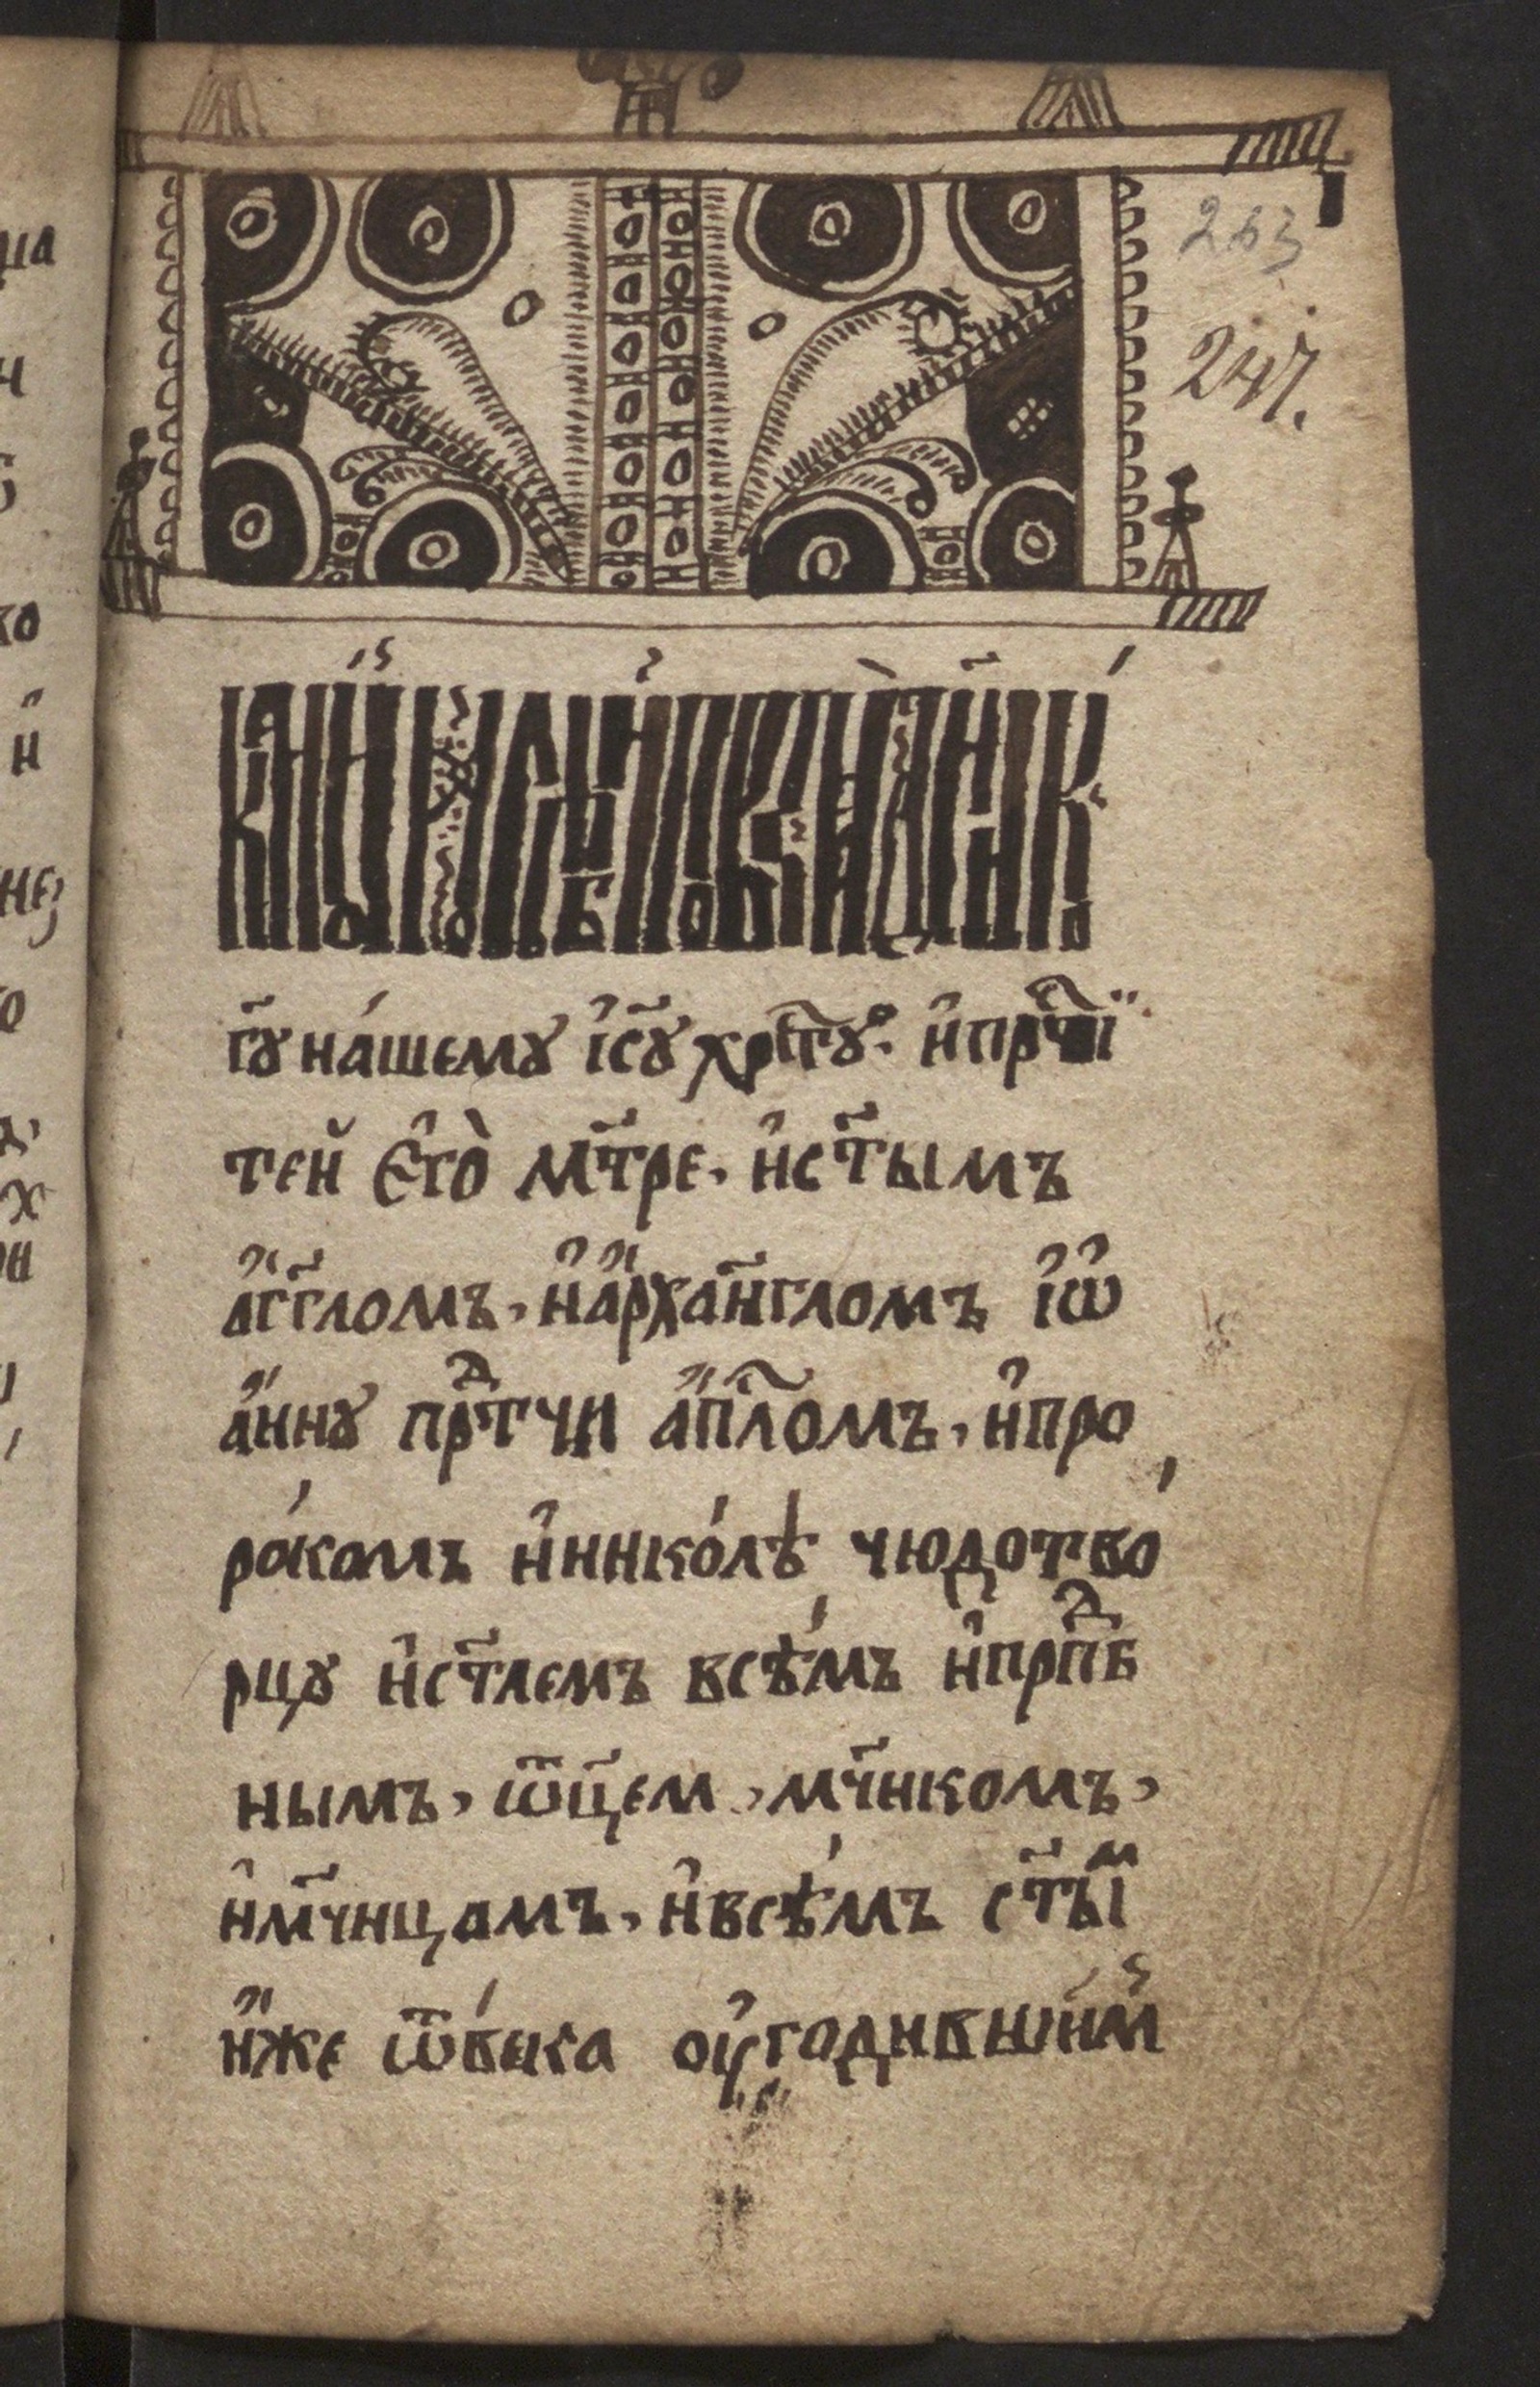 263
247.
канꙋ́нъ молебенъ и҆ исповѣ́данїе къ
гд҃ꙋ на́шемꙋ і҆с҃ꙋ хрⷭ҇тꙋ. и҆ прчⷭ҇ї
тей є҆гѡ̀ мт҃ре, и҆ ст҃ымъ
а҆́гг҃ломъ, и҆ а҆рха́нг҃ломъ і҆ѡ
а҆́ннꙋ прⷣт҃чи а҆пⷭ҇ломъ, и҆ про
ро́комъ и҆ нико́лѣ чюдотво́
рцꙋ и҆ ст҃лемъ всѣ́мъ и҆ прпⷣб
нымъ, ѿц҃ем, мч҃нкомъ,
и҆ мч҃ницамъ, и҆ всѣ́мъ ст҃ыⷨ
и҆́же ѿ вѣ́ка ѹ҆годивши́мⷨ